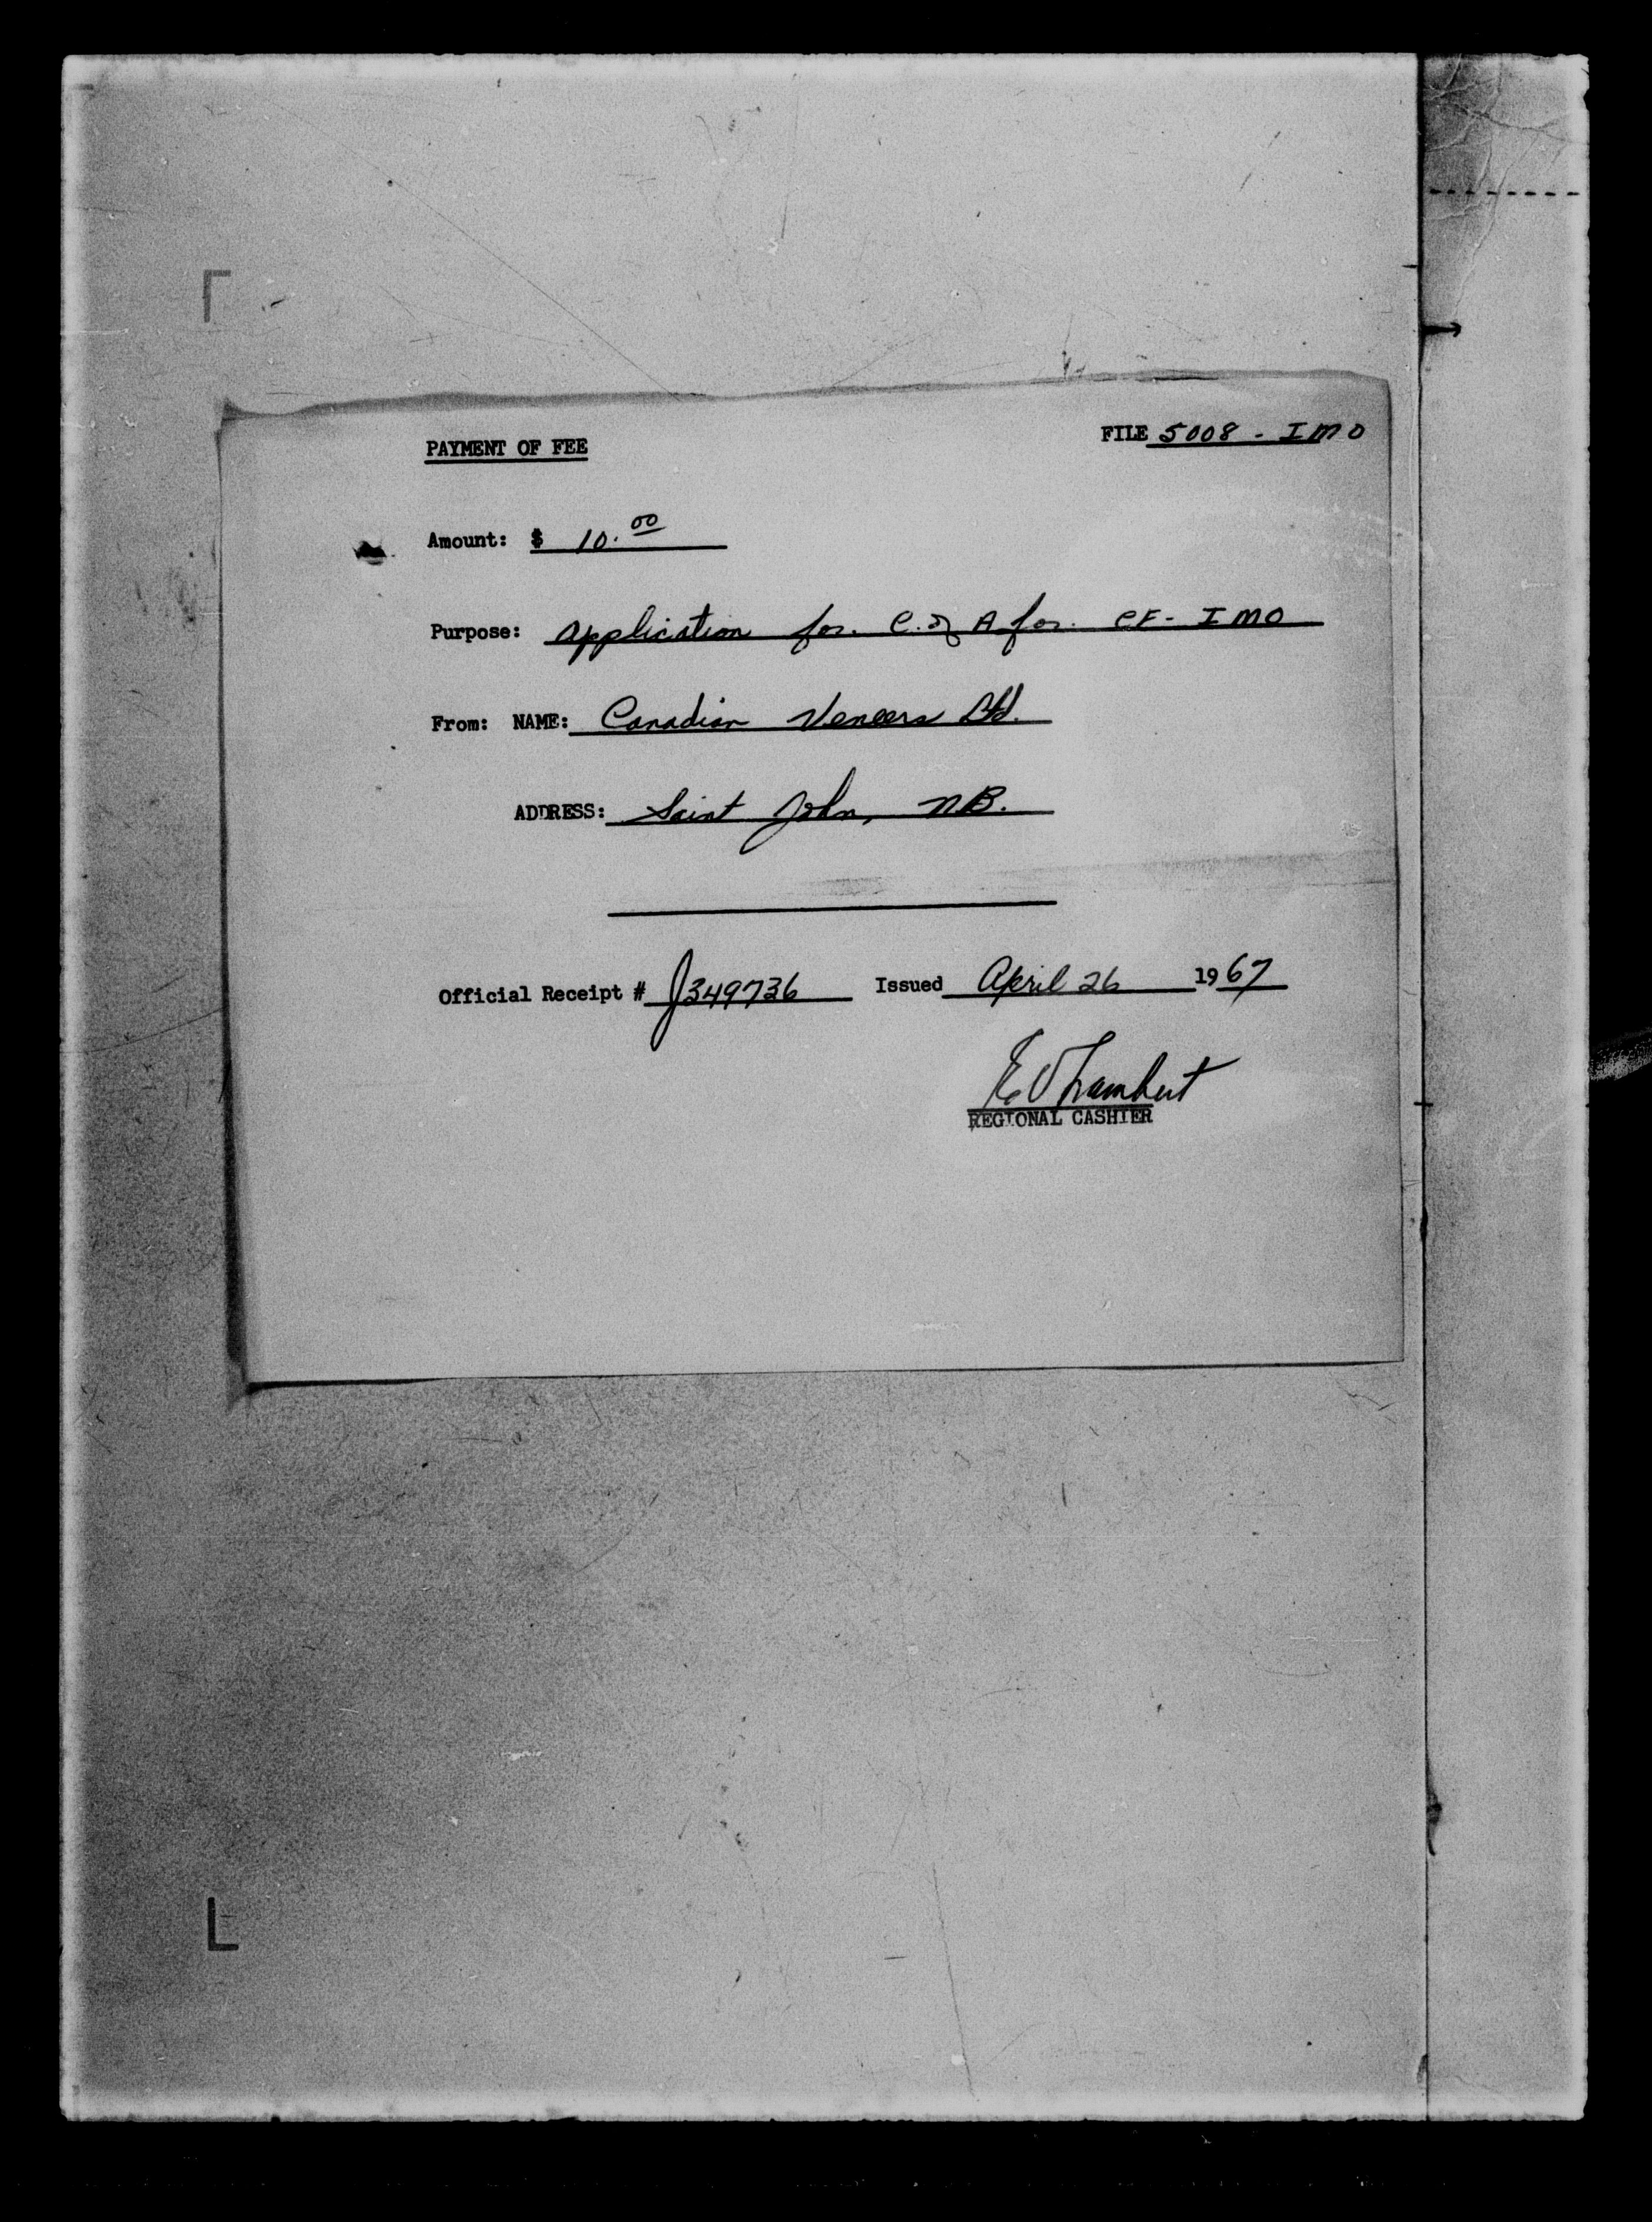 PAYMENT OF FEE
FILE 5008 - IMO
Amount: $ 10.00
Purpose: Application for. C. of A for. CF- IMO
From: NAME: Canadian Veneers Ltd.
ADDRESS: Saint John, N.B.
Official Receipt # J349736 Issued April 26 1967
Lambert
REGIONAL CASHIER